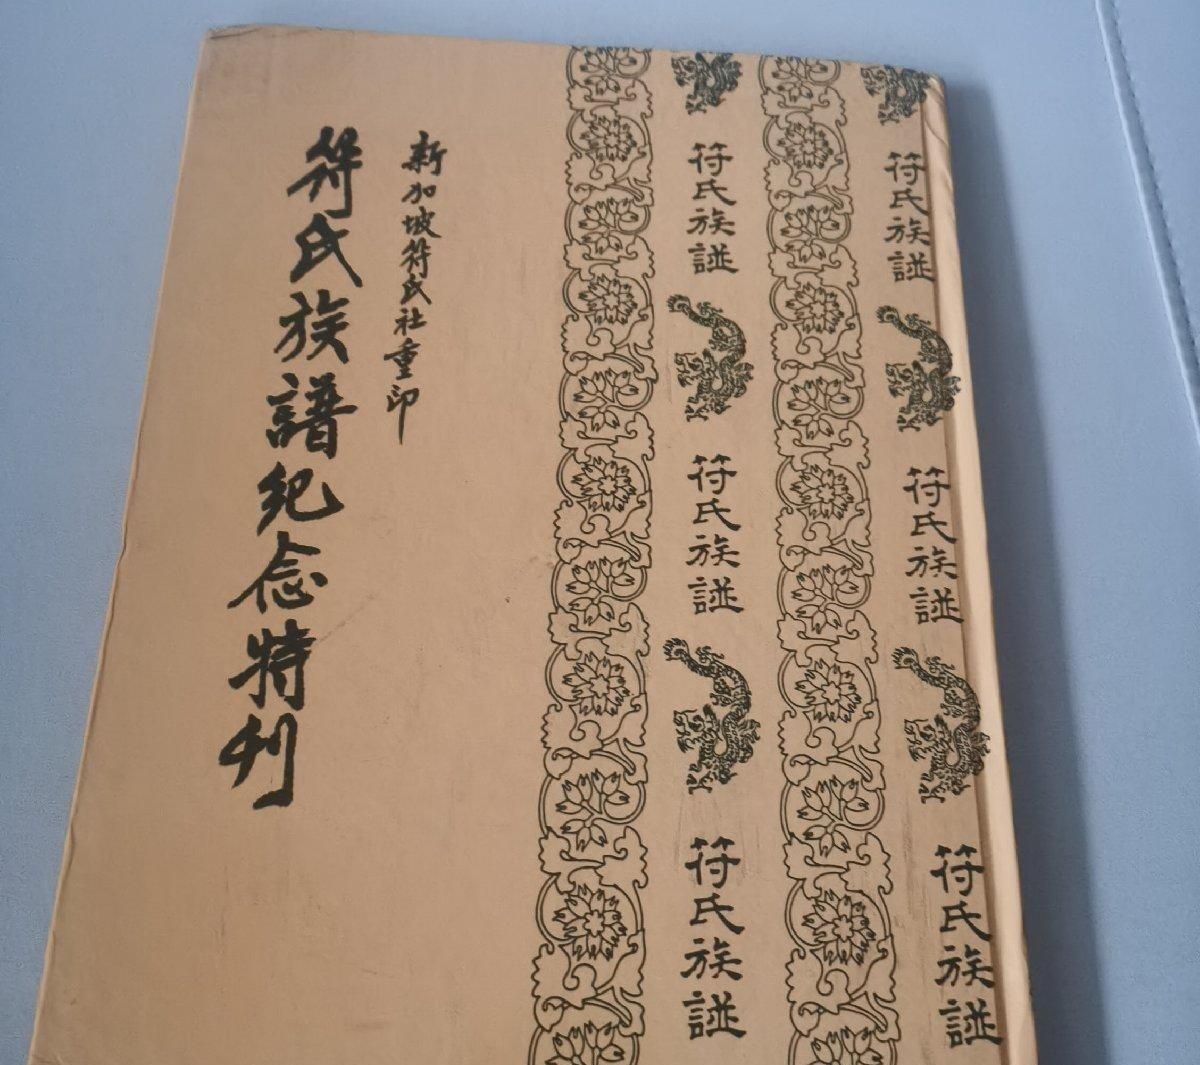 符氏族譜
符氏族譜
符氏族譜
符氏族譜
符氏族譜
符氏族譜
新加坡符氏社重印
符氏族譜紀念特刊